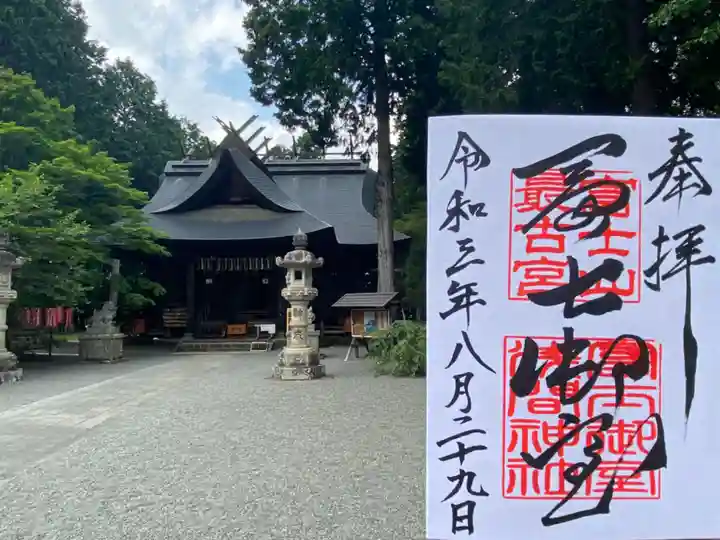 奉拝
冨士御室
富士山
最古宮
冨士御室
浅間神社
令和三年八月二十九日